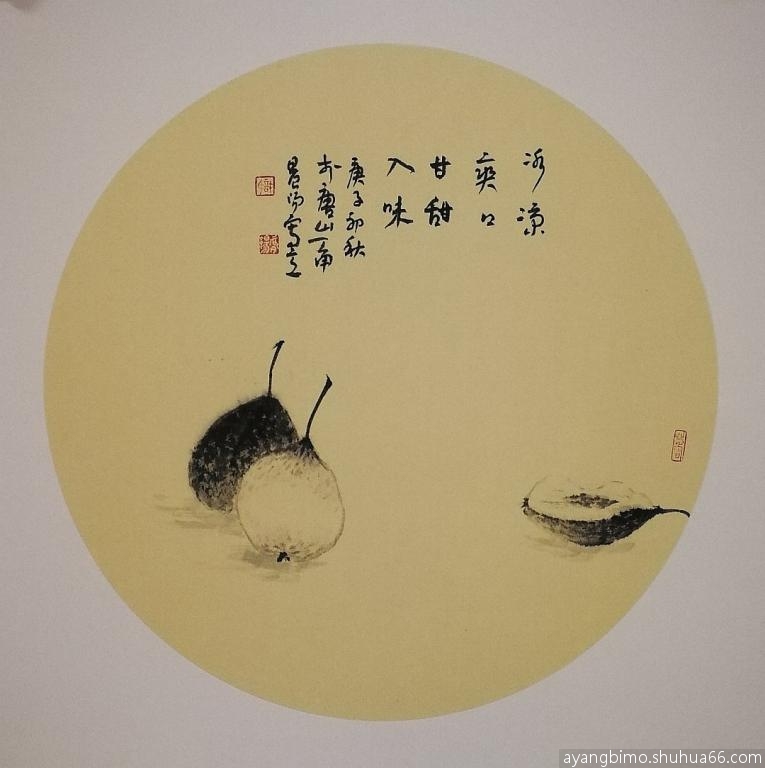 冰凉
爽口
甘甜
入味
庚子初秋
于唐山一角
写意
ayangbimo.shuhua66.com